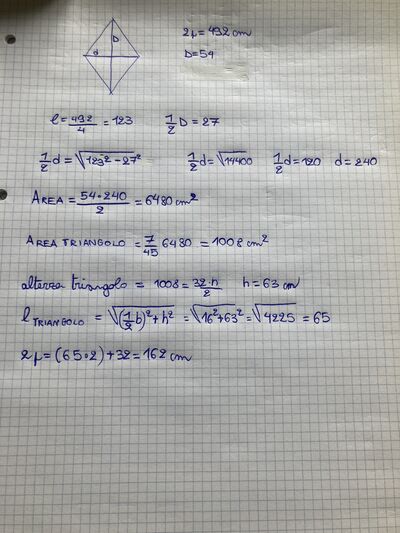 D
d
2p = 492 cm
D = 54
l = 492/4 = 123 1/2 D = 27
1/2 d = √123² - 27² 1/2 d = √14400 1/2 d = 120 d = 240
AREA = 54 · 240/2 = 6480 cm²
AREA TRIANGOLO = 7/45 6480 = 1008 cm²
altezza triangolo = 1008 = 32 · h/2 h = 63 cm
l TRIANGOLO = √(1/2 b)² + h² = √16² + 63² = √4225 = 65
2p = (65 · 2) + 32 = 162 cm